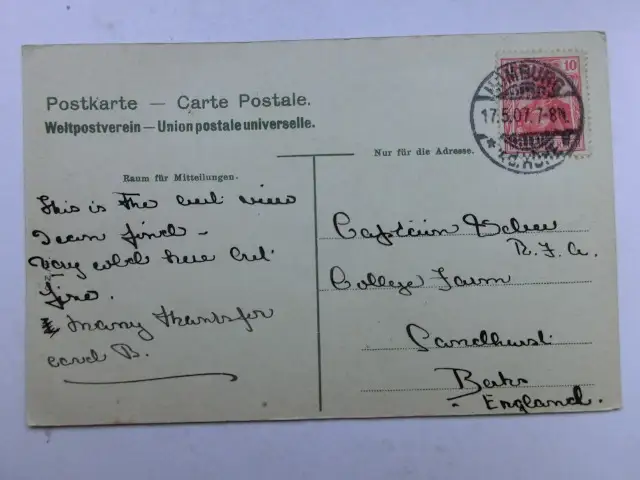 Postkarte — Carte Postale.
Weltpostverein — Union postale universelle.
10
HOMBURG
17.5.07. 7-8N.
* v.d. HÖHE *
Nur für die Adresse.
Raum für Mitteilungen.
This is the best view
I can find -
Very cold here but
fine.
Many thanks for
card B.
Captain
R. F. A.
College Farm
Sandhurst
Berks
England.